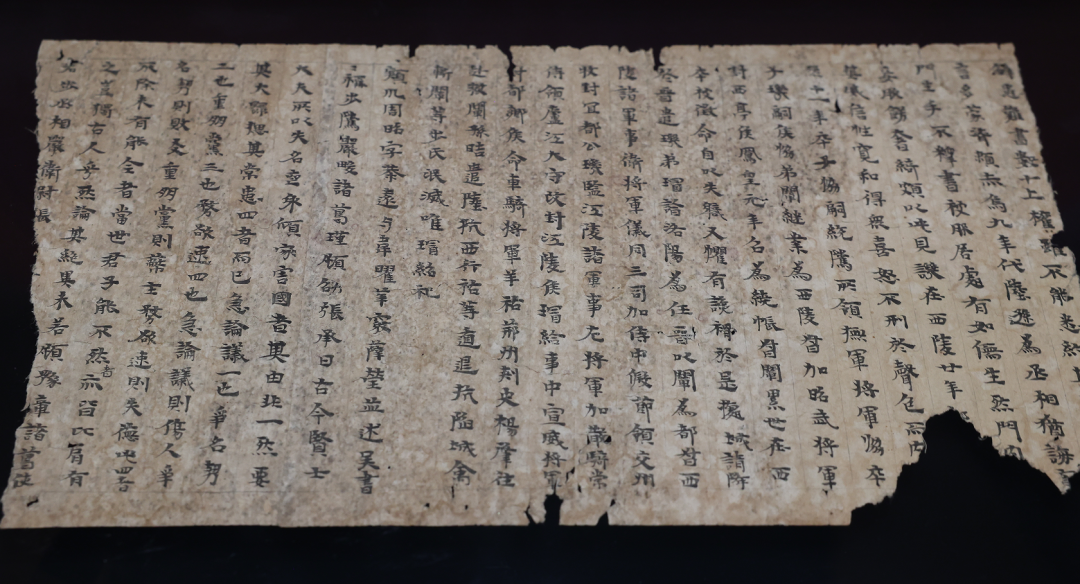 解患難書數十上權雖不能悉納
言多蒙濟賴赤烏九年代陸遜為丞相猶誨
門生手不釋書被服居處有如儒生然門內
妾服飾奢綺頗以此見譏在西陵廿年
敬其威信性寬和得眾喜怒不形於聲色而內
十一年卒子協嗣統騭所領撫軍將軍協卒
子璣嗣侯協弟闡繼業為西陵督加昭武將軍
封西亭侯鳳皇元年召為繞帳督闡累世在西
卒被徵命自以失職又懼有讒禍於是據城請降
於晉遣璣弟璿詣洛陽為任晉以闡為都督西
陵諸軍事衛將軍儀同三司加侍中假節領交州
牧封宜都公璣監江陵諸軍事左將軍加散騎常
侍領廬江太守改封江陵侯璿給事中宣威將軍
封都鄉侯命車騎將軍羊祜荊州刺史楊肇往
赴救闡孫晧遣陸抗西行祜等遁退抗陷城禽
斬闡等步氏泯滅唯璿紹祀
潁川周昭字恭遠與韋曜華覈薛瑩並述吳書
稱步騭嚴畯諸葛瑾顧劭張承曰古今賢士
大夫所以失名喪身傾家害國者其由非一然要
其大歸揔其常患四者而已急論議一也爭名勢
二也重朋黨三也務欲速四也急論議則傷人爭
名勢則敗友重朋黨則蔽主務欲速則失德此四者
不除未有能全者當世君子能不然者亦皆比肩有
之豈獨古人乎然論其絕異未若顧豫章諸葛使
君步丞相嚴衛尉張